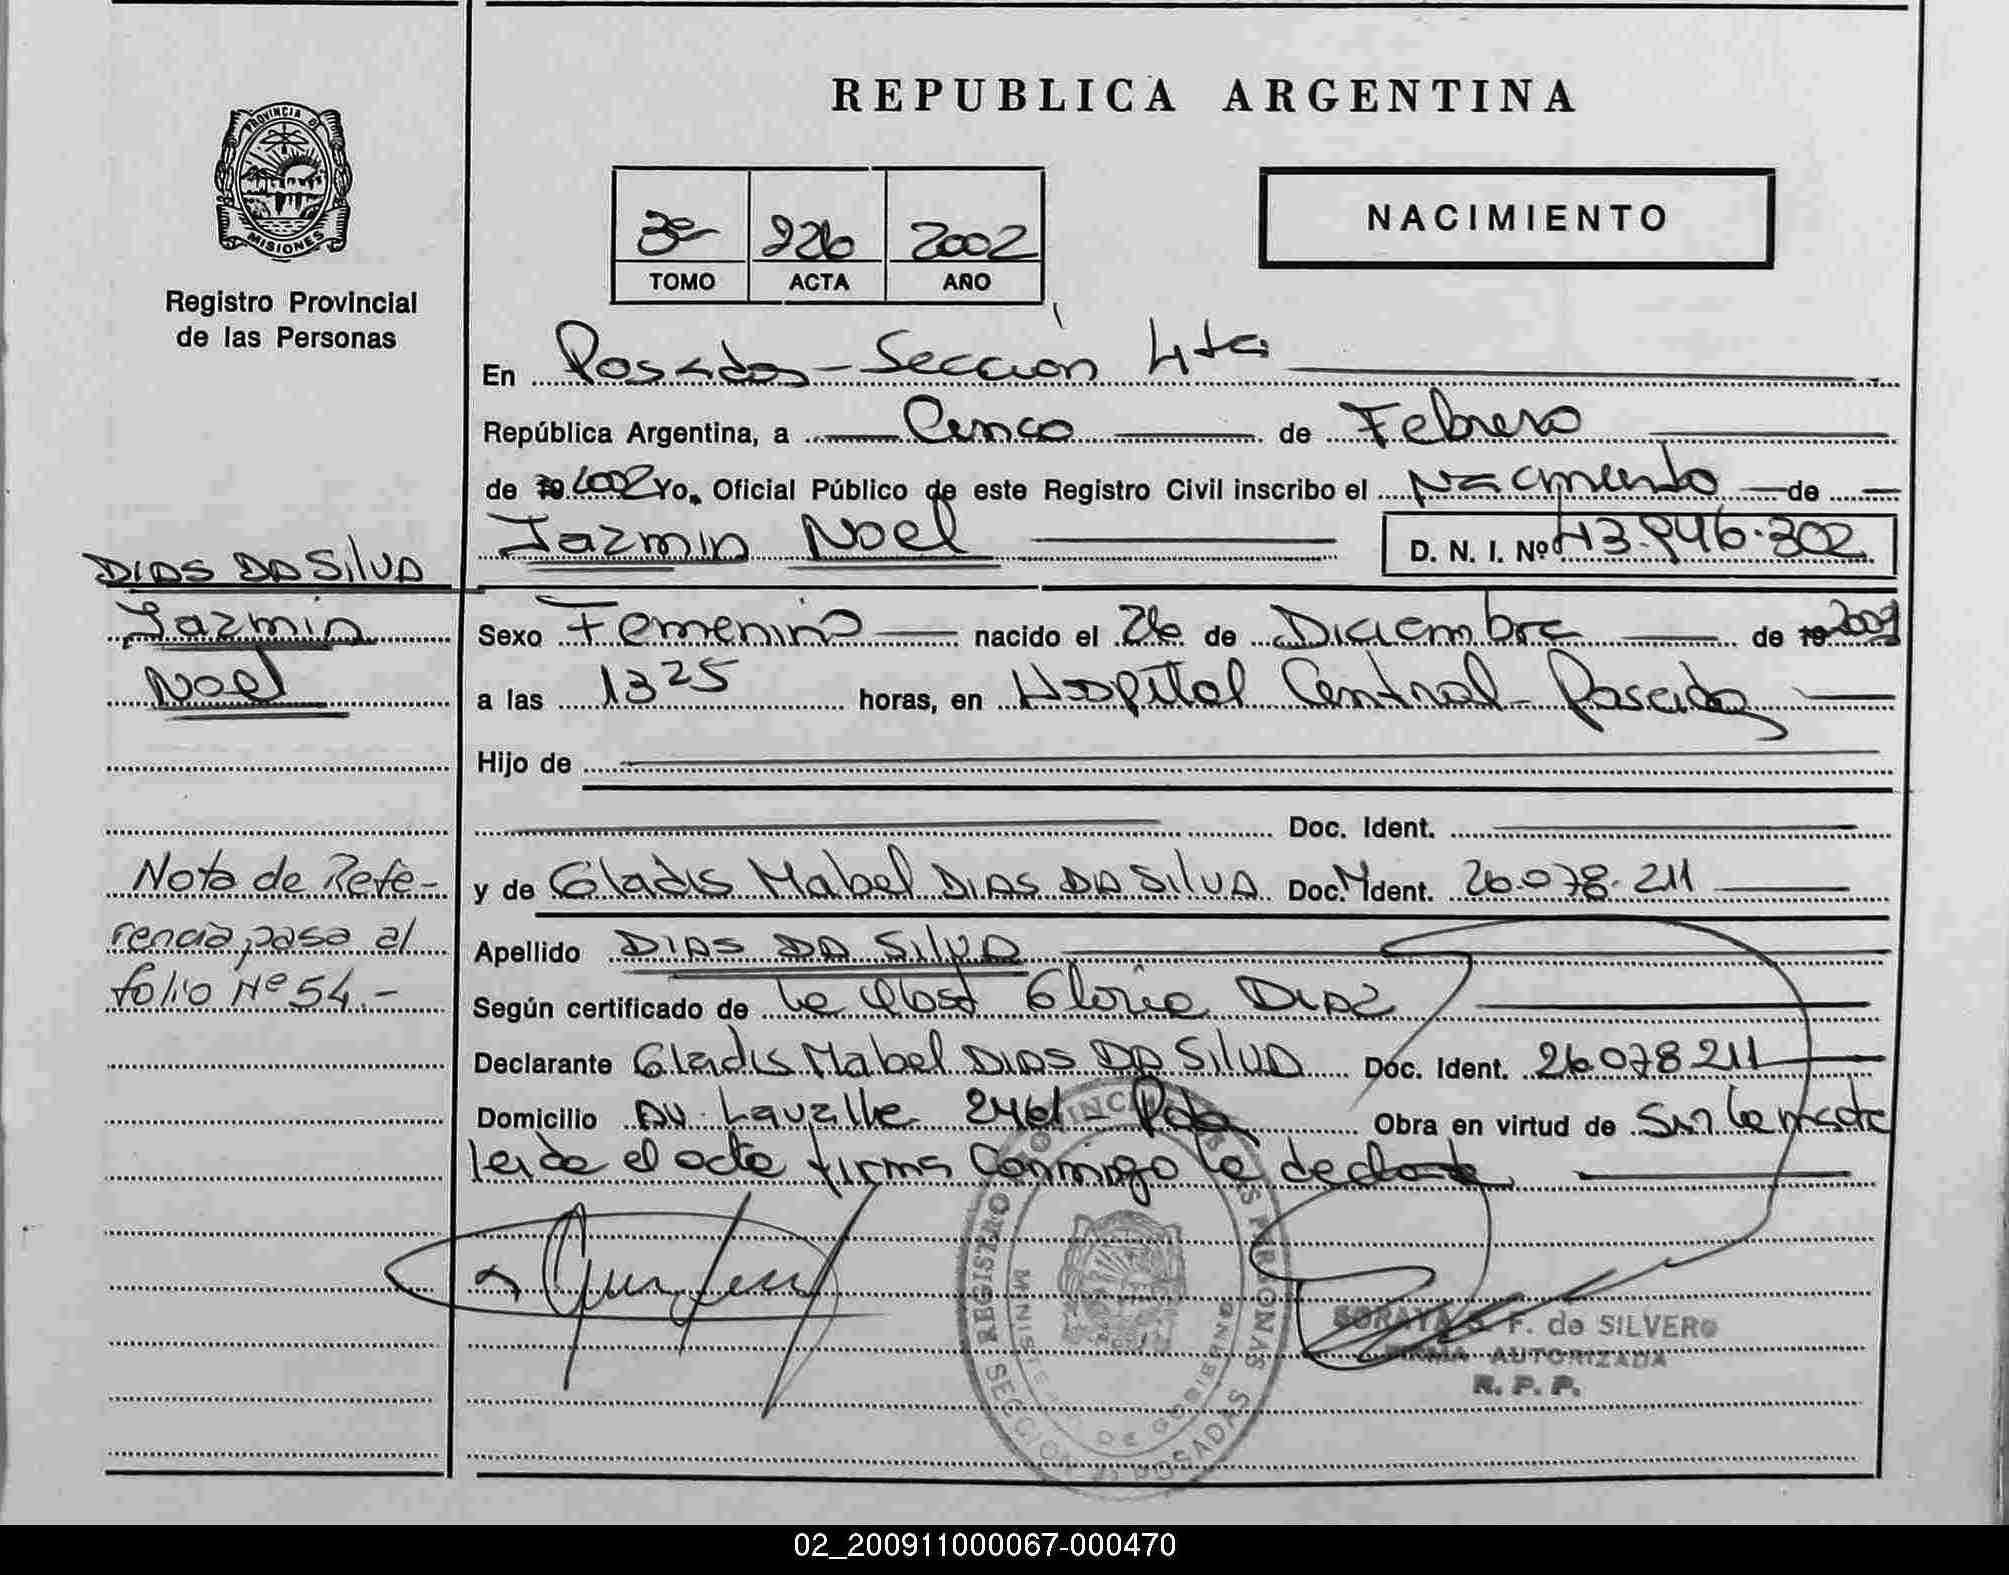 REPUBLICA ARGENTINA
PROVINCIA DE
MISIONES
Registro Provincial
de las Personas
3º 226 2002
TOMO ACTA AÑO
NACIMIENTO
En Posadas - Sección 4ta
República Argentina, a Cinco de Febrero
de 2002 Yo, Oficial Público de este Registro Civil inscribo el Nacimiento de
Jazmin Noel D. N. I. Nº 43.946.302
DIAS DA SILVA
Jazmin
Noel
Sexo Femenino nacido el 26 de Diciembre de 19 2001
a las 13 25 horas, en Hospital Central - Posadas
Hijo de
Doc. Ident.
Nota de Refe-
rencia pasa al
folio Nº 54.-
y de Gladis Mabel DIAS DA SILVA Doc. Ident. 26.078.211
Apellido DIAS DA SILVA
Según certificado de la Obst Gloria DIAZ
Declarante Gladis Mabel DIAS DA SILVA Doc. Ident. 26.078.211
Domicilio Av. Lavalle 2461 Pdas Obra en virtud de Ser la madre
leida el acta firma conmigo la declarante
REGISTRO PROVINCIAL DE LAS PERSONAS
MINISTERIO DE GOBIERNO
SECCION 4ª POSADAS
SORAYA F. de SILVERO
FIRMA AUTORIZADA
R. P. P.
02_200911000067-000470